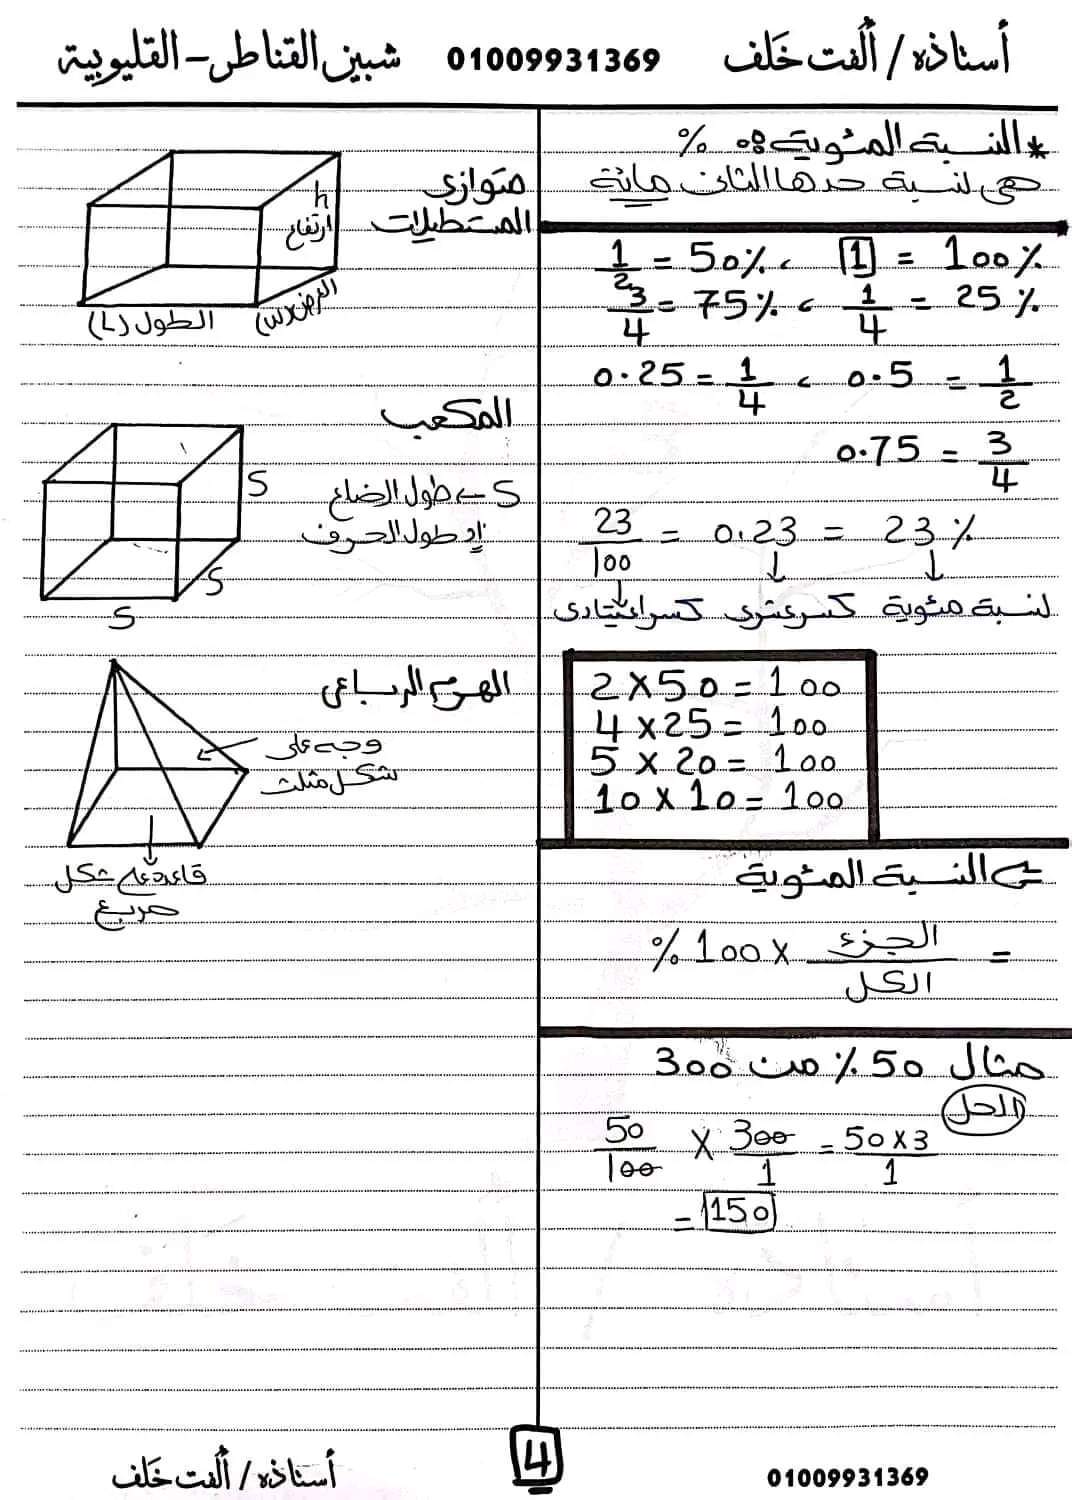 أستاذه / ألفت خَلف 01009931369 شبين القناطر - القليوبية
* النسبة المئوية :- %
هى نسبة حدها الثانى مائة
1 = 100% ، 1/2 = 50%
1/4 = 25% ، 3/4 = 75%
1/2 = 0.5 ، 1/4 = 0.25
3/4 = 0.75
23% = 0.23 = 23/100
نسبة مئوية كسر عشرى كسر اعتيادى
2 x 50 = 100
4 x 25 = 100
5 x 20 = 100
10 x 10 = 100
النسبة المئوية
= الجزء / الكل x 100 %
مثال 50 % من 300
الحل
50/100 x 300/1 = 50 x 3/1
= 150
متوازى
المستطيلات
h
ارتفاع
العرض (w)
الطول (L)
المكعب
S ← طول الضلع
او طول الحرف
S
S
S
الهرم الرباعى
وجه على
شكل مثلث
قاعدة على شكل
مربع
أستاذه / ألفت خَلف 4 01009931369